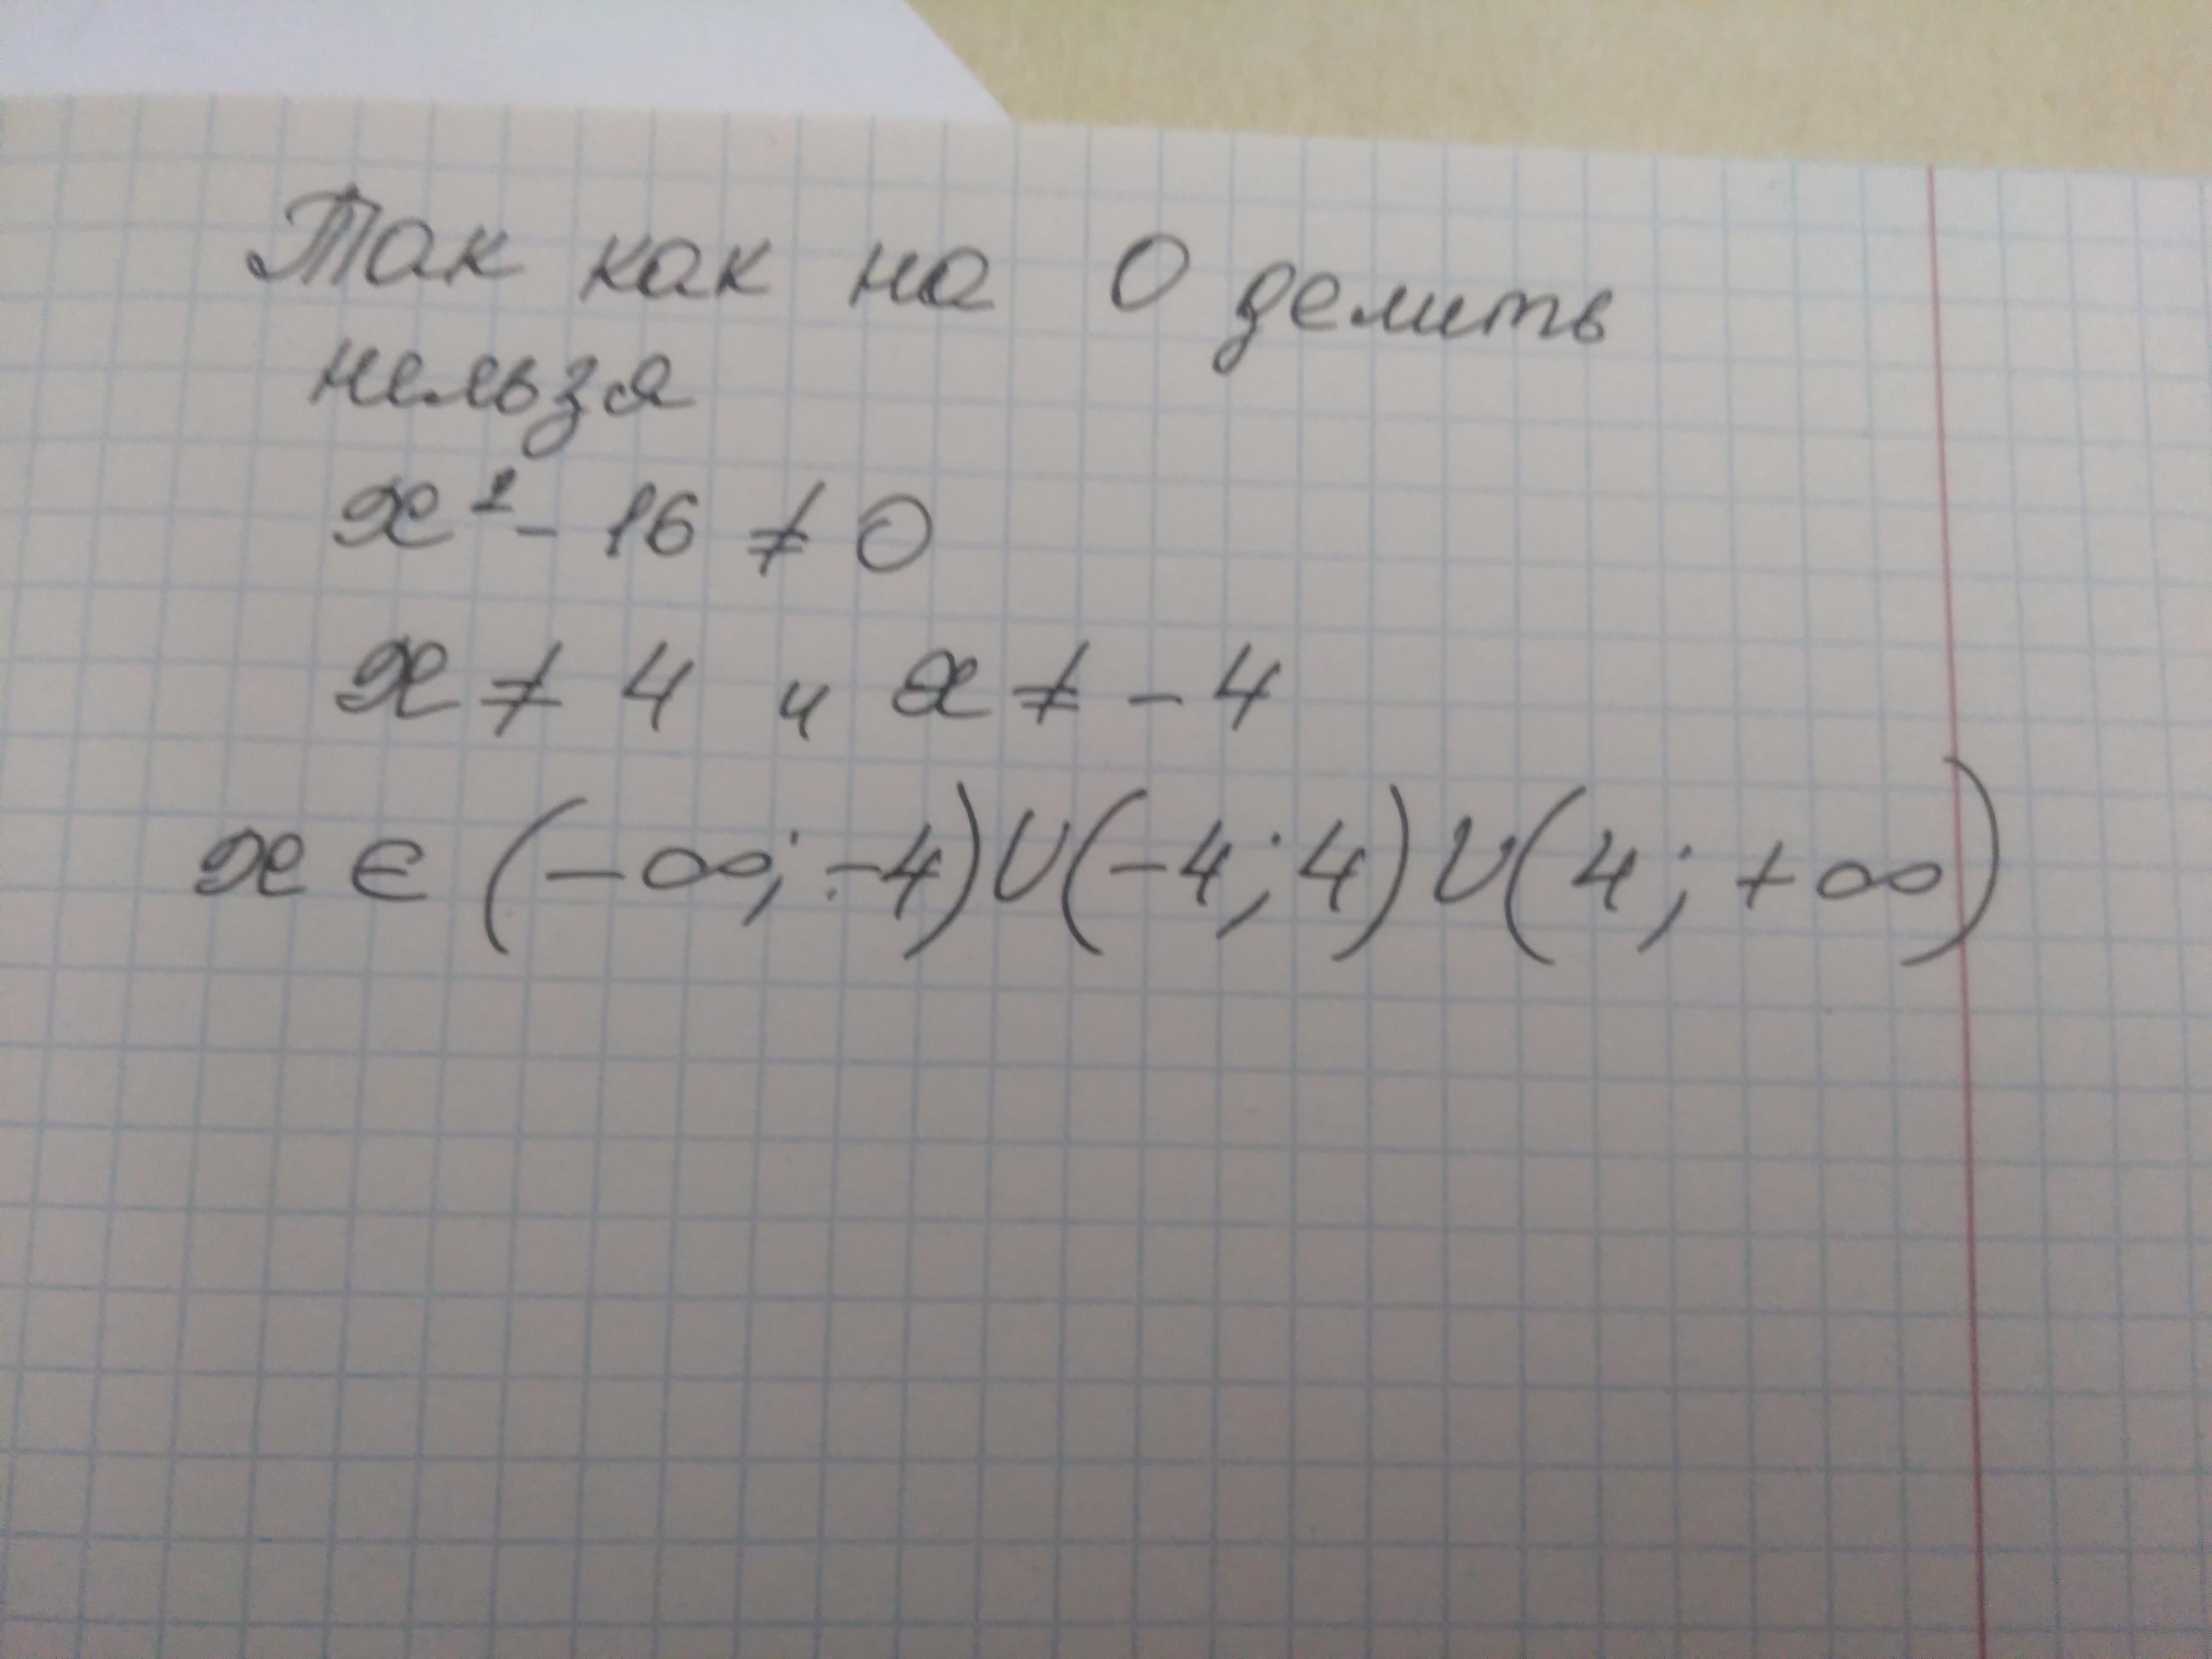 Так как на 0 делить
нельзя
x² - 16 ≠ 0
x ≠ 4 и x ≠ - 4
x ∈ (-∞; -4)∪(-4; 4)∪(4; +∞)